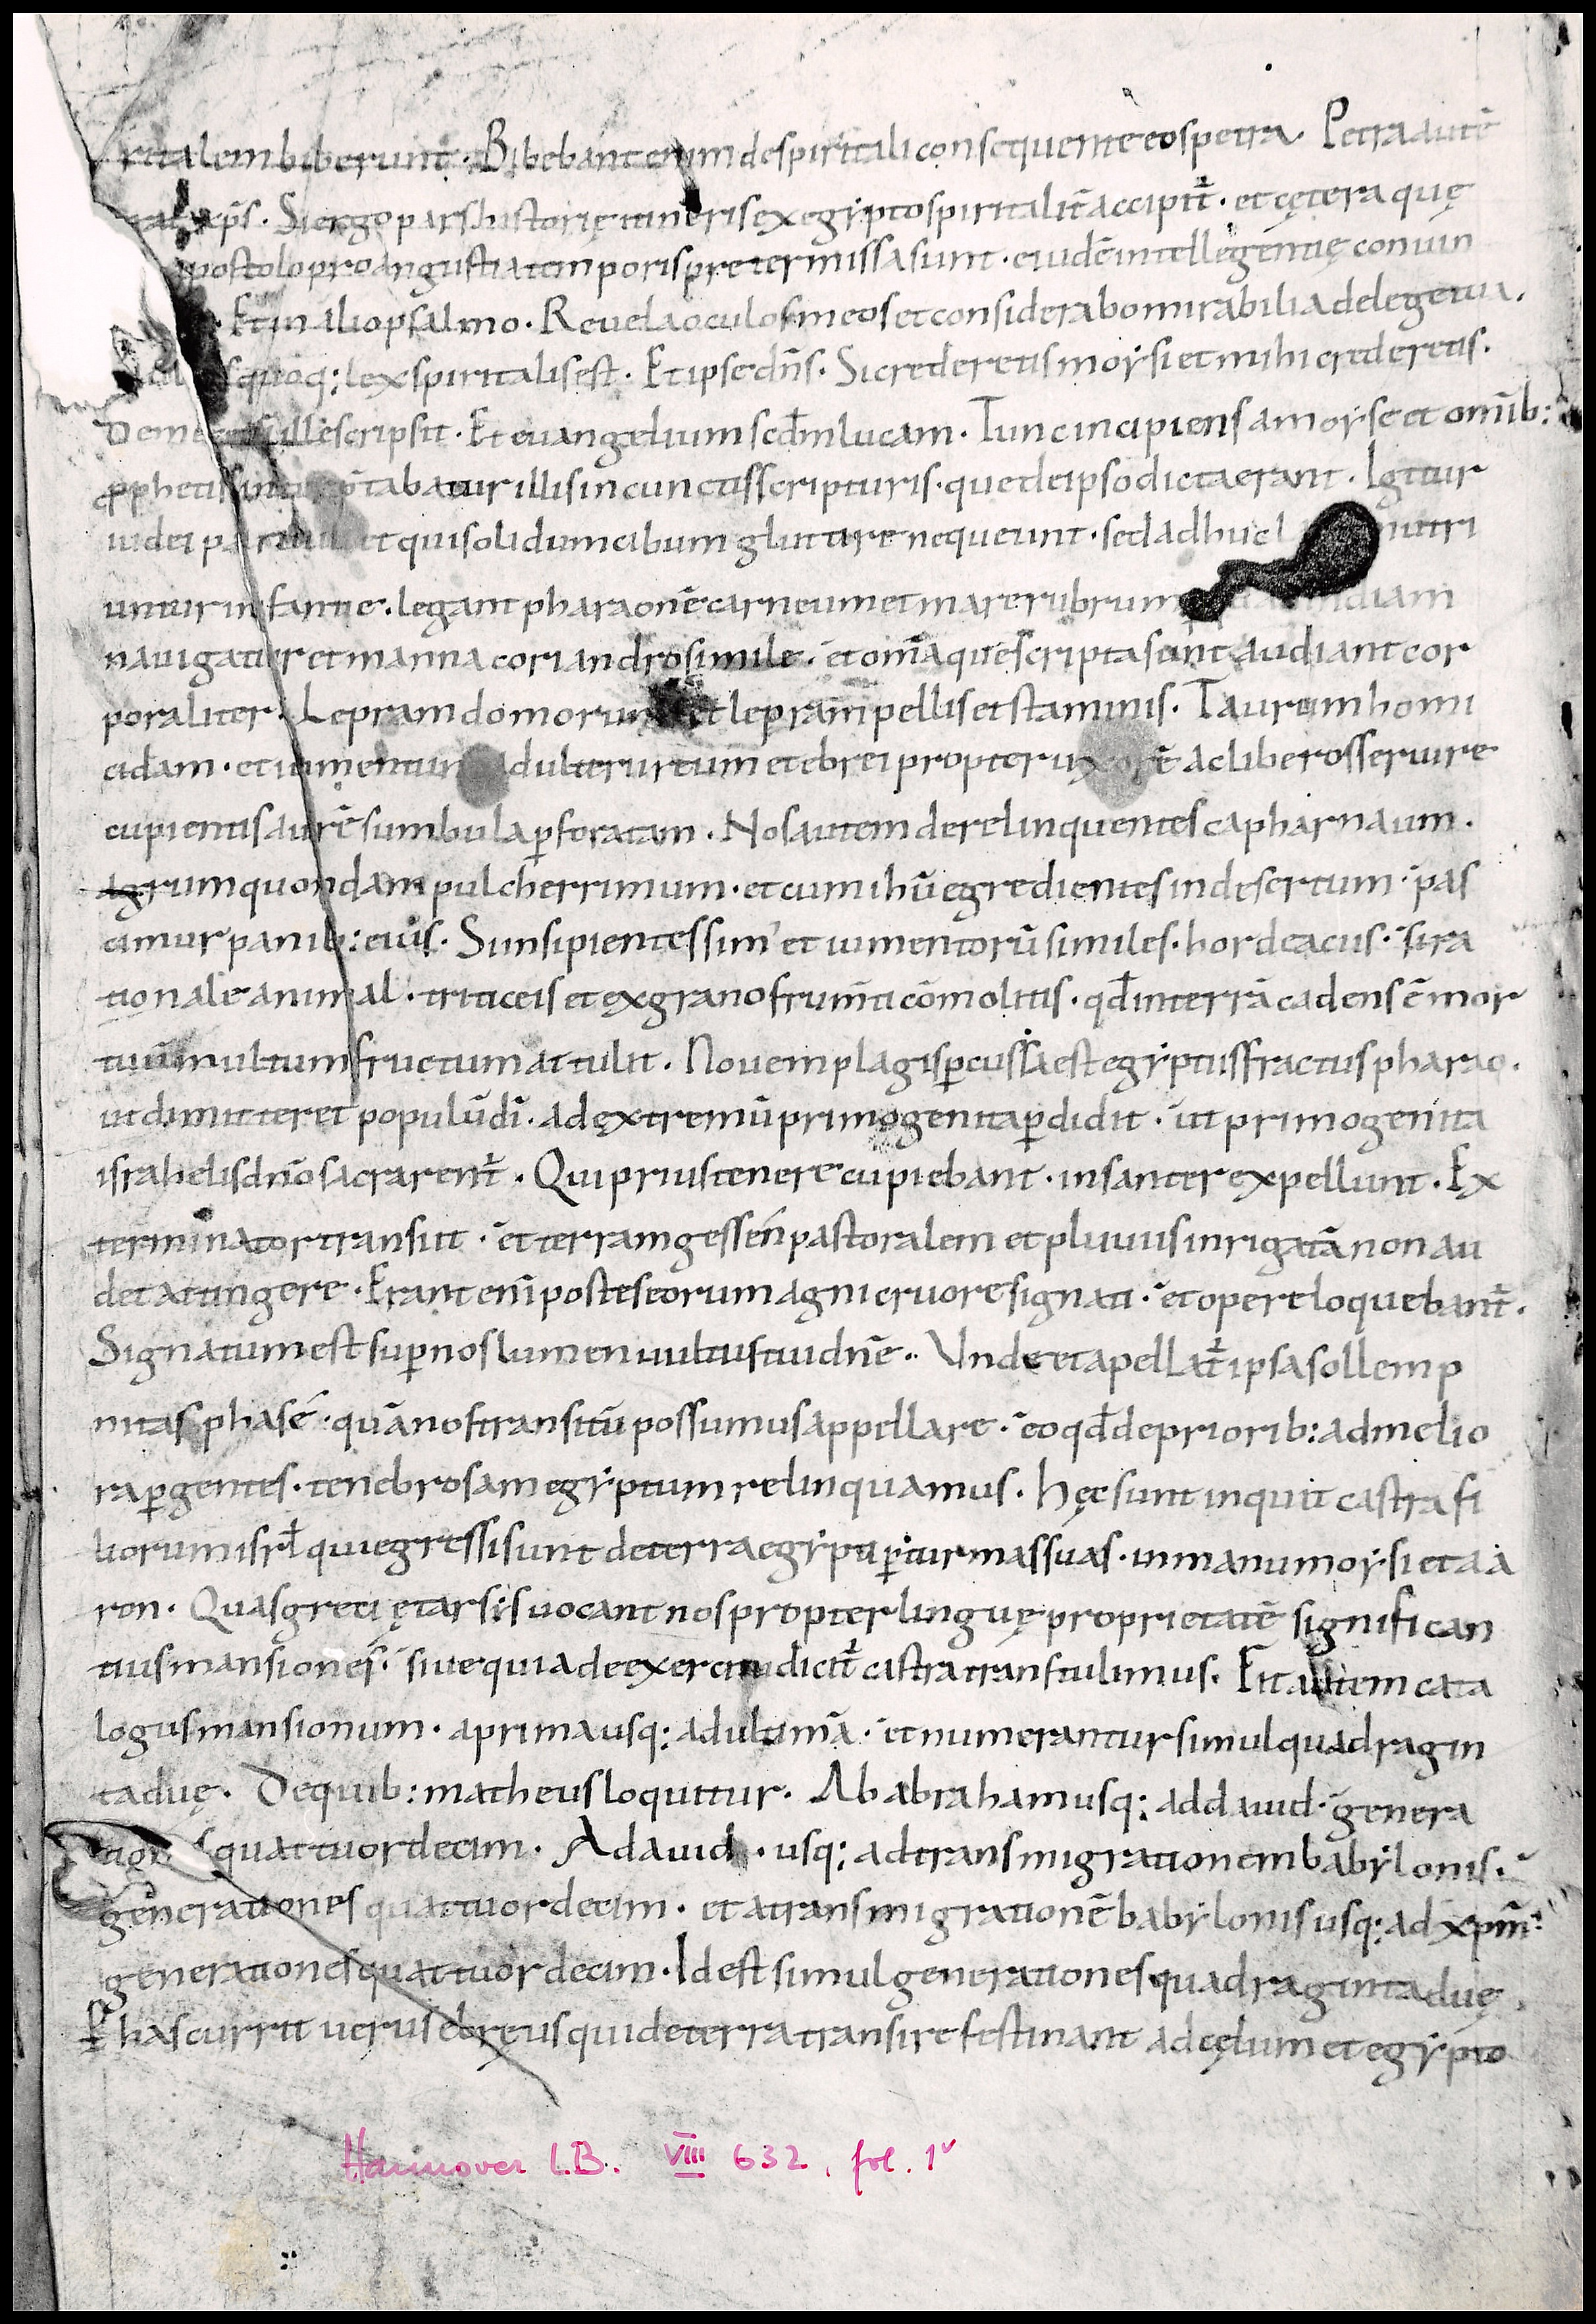 ritalem biberunt. Bibebant enim de spiritali consequente eos petra. Petra autē
xp̄s. Si ergo pars historię itineris ex egypto spiritalit̄ accipit̄. et cętera quę
apostolo pro angustia temporis pretermissa sunt. eiudē intellegentię conuin
Et in alio psalmo. Reuela oculos meos et considerabo mirabilia de lege tua.
quoq; lex spiritalis est. Et ipse dn̄s. Si crederetis moysi et mihi crederetis.
De me ille scripsit. Et euangelium scd̄m lucam. Tunc incipiens a moyse et omīb:
p̱phetis tabatur illis in cunctis scripturis. que de ipso dicta erant. Igitur
iudei et qui solidum cibum glutire nequeunt. sed adhuc nutri
untur infantie. legant pharaonē carneum et mare rubrum indiam
nauigatur et manna coriandro simile. et om̄a que scripta sunt audiant cor
poraliter. Lepram domorum et lepram pellis et staminis. Taurum homi
cidam. et iumentum adulterii reum et ebrei propter uxorē ac liberos seruire
cupientis aurē sumbula ꝑforatam. Nos autem derelinquentes capharnaum.
agrum quondam pulcherrimum. et cum ihū egredientes in desertum. pas
cimur panib: eius. Si insipientes sim' et iumentorū similes. hordeacus. si ra
tionale animal. triticeis et ex grano frum̄ti cōmolitis. qd̄ in terrā cadens ē mor
tuū multum fructum attulit. Nouem plagis ꝑcussa est egyptus fractus pharao.
ut dimitteret populū dī. ad extremū primogenita ꝑdidit. ut primogenita
israhelis dn̄o sacrarent̄. Qui prius tenere cupiebant. insanter expellunt. Ex
terminator transiit. et terram gessen pastoralem et pluuiis inrigatā non au
det atingere. Erant enī postes eorum agni cruore signati. et opere loquebant̄.
Signatum est suꝑ nos lumen uultus tui dn̄e. Vnde et apellat̄ ipsa sollemp
nitas phase. quā nos transitū possumus appellare. eo qd̄ de priorib: ad melio
ra ꝑgentes. tenebrosam egyptum relinquamus. hęc sunt inquit castra fi
liorum isrl̄ qui egressi sunt de terra egypti ꝑ turmas suas. in manu moysi et aa
ron. Quas greci ętarsis uocant nos propter linguę proprietatē significan
tius mansiones. siue quia de exercitu dicit̄ castra transtulimus. Fit autem cata
logus mansionum. a prima usq; ad ultimā. et numerantur simul quadragin
ta duę. De quib: matheus loquitur. Ab abraham usq; ad dauid. genera
quattuordecim. A dauid. usq; ad transmigrationem babylonis.
generationes quattuordecim. et a transmigrationē babylonis usq; ad xpm̄.
generationes quattuordecim. Id est simul generationes quadraginta duę.
ꝑ has currit uerus ebreus qui de terra transire festinant ad cęlum et egypto
Hannover L.B. VIII 632, fol. 1v